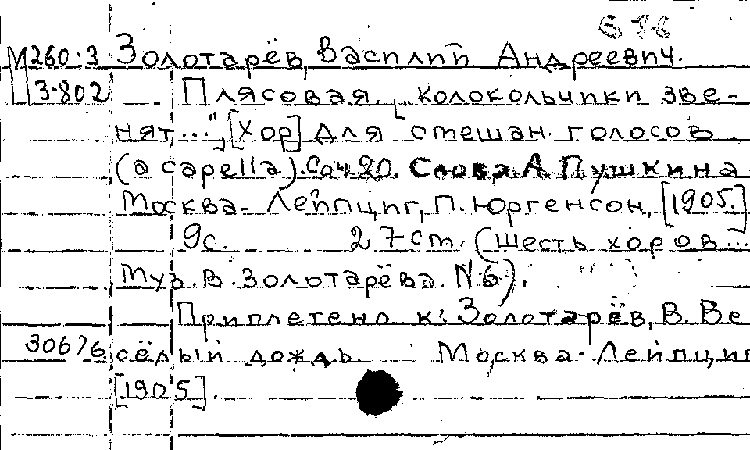 М260:3 Золотарёв, Василий Андреевич.
3-802 Плясовая. „колокольчики зве-
нят...", [Хор] для смешан. голосов
(a capella). Соч. 20. Слова А. Пушкина
Москва-Лейпциг, П. Юргенсон, [1905.]
9с. 27 cm. (Шесть хоров...
Муз. В. Золотарёва. N6).
Приплетено к: Золотарёв, В. Ве
сёлый дождь. Москва-Лейпциг
[1905].